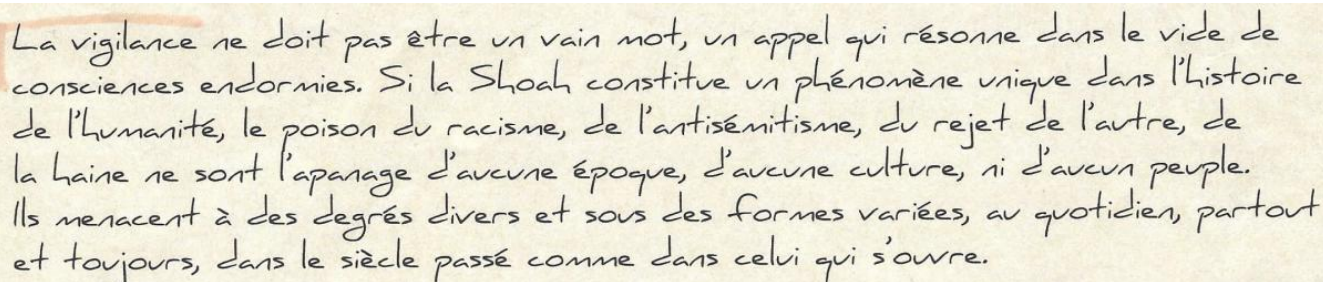 La vigilance ne doit pas être un vain mot, un appel qui résonne dans le vide de
consciences endormies. Si la Shoah constitue un phénomène unique dans l'histoire
de l'humanité, le poison du racisme, de l'antisémitisme, du rejet de l'autre, de
la haine ne sont l'apanage d'aucune époque, d'aucune culture, ni d'aucun peuple.
Ils menacent à des degrés divers et sous des formes variées, au quotidien, partout
et toujours, dans le siècle passé comme dans celui qui s'ouvre.